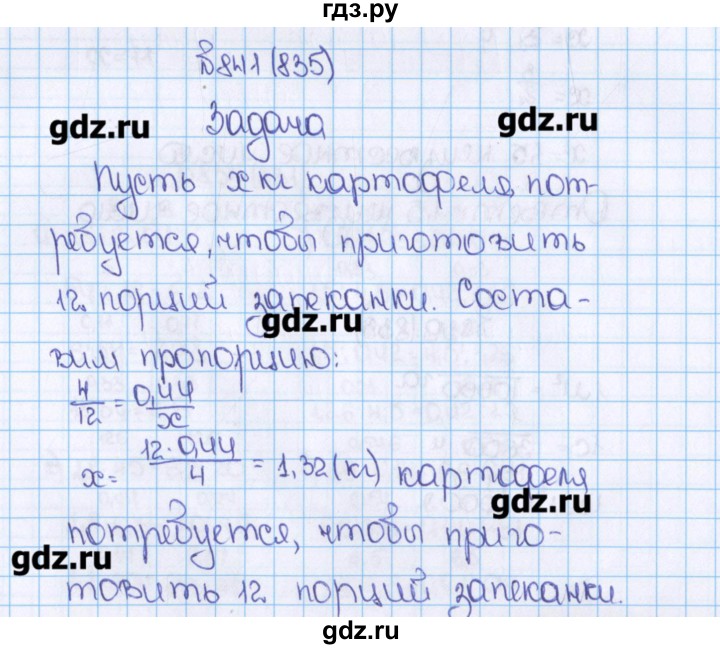 гдз.ру
№841 (835)
gdz.ru
Задача
gdz.ru
Пусть х кг картофеля пот-
ребуется, чтобы приготовить
12 порций запеканки. Соста-
gdz.ru
вим пропорцию:
4/12 = 0,44/x
x = 12·0,44/4 = 1,32 (кг) картофеля
gdz.ru
потребуется, чтобы приго-
gdz.ru
товить 12 порций запеканки.
gdz.ru